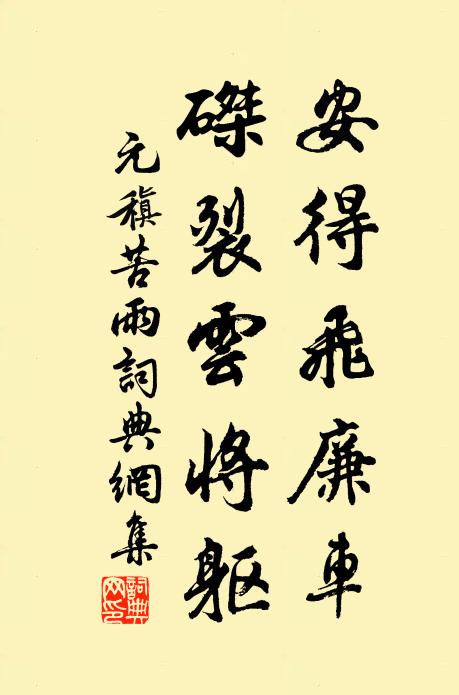 安得飛廉車
磔裂雲將軀
元稹苦雨詞典網集
詞典網印